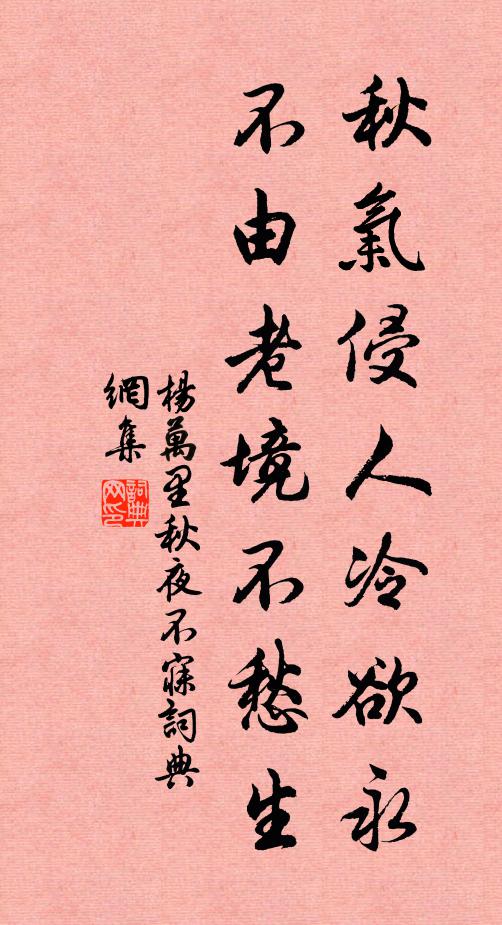 秋氣侵人冷欲冰
不由老境不愁生
楊萬里秋夜不寐詞典
網集
詞典
网印